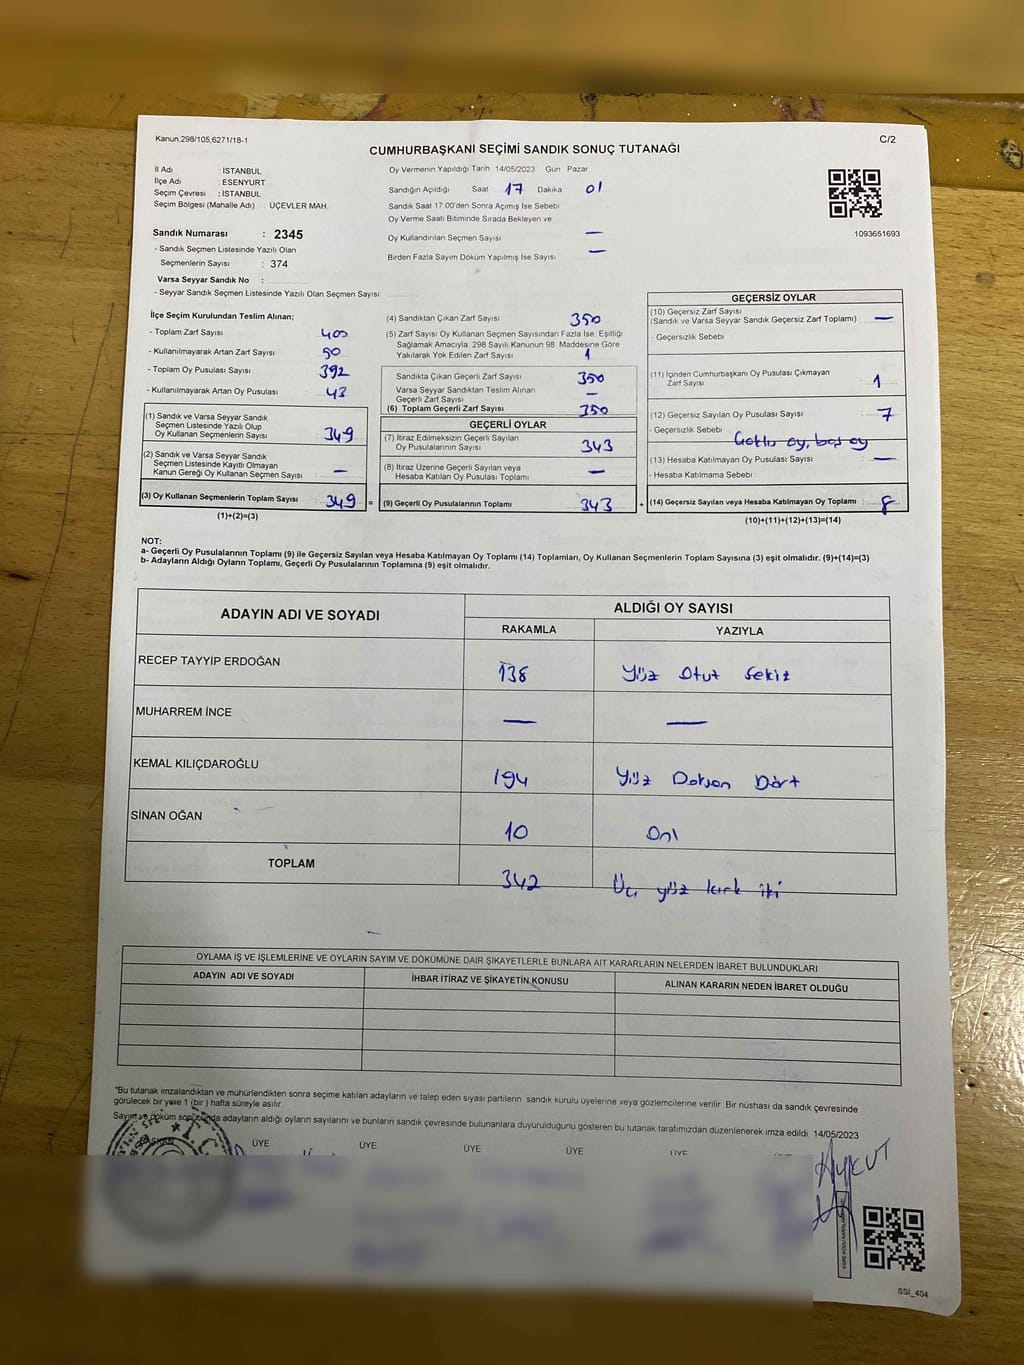 Kanun:298/105;6271/18-1
C/2
CUMHURBAŞKANI SEÇİMİ SANDIK SONUÇ TUTANAĞI
İl Adı : İSTANBUL
İlçe Adı : ESENYURT
Seçim Çevresi : İSTANBUL
Seçim Bölgesi (Mahalle Adı) : ÜÇEVLER MAH.
Sandık Numarası : 2345
- Sandık Seçmen Listesinde Yazılı Olan
Seçmenlerin Sayısı : 374
Varsa Seyyar Sandık No :
- Seyyar Sandık Seçmen Listesinde Yazılı Olan Seçmen Sayısı
Oy Vermenin Yapıldığı Tarih 14/05/2023 Gün Pazar
Sandığın Açıldığı Saat 17 Dakika 01
Sandık Saat 17:00'den Sonra Açımış İse Sebebi
Oy Verme Saati Bitiminde Sırada Bekleyen ve
Oy Kullandırılan Seçmen Sayısı —
Birden Fazla Sayım Döküm Yapılmış İse Sayısı —
1093651693
İlçe Seçim Kurulundan Teslim Alınan;
- Toplam Zarf Sayısı 400
- Kullanılmayarak Artan Zarf Sayısı 50
- Toplam Oy Pusulası Sayısı 392
- Kullanılmayarak Artan Oy Pusulası 43
(1) Sandık ve Varsa Seyyar Sandık
Seçmen Listesinde Yazılı Olup
Oy Kullanan Seçmenlerin Sayısı 349
(2) Sandık ve Varsa Seyyar Sandık
Seçmen Listesinde Kayıtlı Olmayan
Kanun Gereği Oy Kullanan Seçmen Sayısı —
(3) Oy Kullanan Seçmenlerin Toplam Sayısı 349 =
(1)+(2)=(3)
(4) Sandıktan Çıkan Zarf Sayısı 350
(5) Zarf Sayısı Oy Kullanan Seçmen Sayısından Fazla İse, Eşitliği
Sağlamak Amacıyla, 298 Sayılı Kanunun 98. Maddesine Göre
Yakılarak Yok Edilen Zarf Sayısı 1
Sandıkta Çıkan Geçerli Zarf Sayısı 350
Varsa Seyyar Sandıktan Teslim Alınan
Geçerli Zarf Sayısı —
(6) Toplam Geçerli Zarf Sayısı 350
GEÇERLİ OYLAR
(7) İtiraz Edilmeksizin Geçerli Sayılan
Oy Pusulalarının Sayısı 343
(8) İtiraz Üzerine Geçerli Sayılan veya
Hesaba Katılan Oy Pusulaları Toplamı —
(9) Geçerli Oy Pusulalarının Toplamı 343 +
GEÇERSİZ OYLAR
(10) Geçersiz Zarf Sayısı
(Sandık ve Varsa Seyyar Sandık Geçersiz Zarf Toplamı) : —
- Geçersizlik Sebebi
(11) İçinden Cumhurbaşkanı Oy Pusulası Çıkmayan
Zarf Sayısı 1
(12) Geçersiz Sayılan Oy Pusulası Sayısı 7
- Geçersizlik Sebebi oy, boş oy
(13) Hesaba Katılmayan Oy Pusulası Sayısı —
- Hesaba Katılmama Sebebi
(14) Geçersiz Sayılan veya Hesaba Katılmayan Oy Toplamı 8
(10)+(11)+(12)+(13)=(14)
NOT:
a- Geçerli Oy Pusulalarının Toplamı (9) ile Geçersiz Sayılan veya Hesaba Katılmayan Oy Toplamı (14) Toplamları, Oy Kullanan Seçmenlerin Toplam Sayısına (3) eşit olmalıdır. (9)+(14)=(3)
b- Adayların Aldığı Oyların Toplamı, Geçerli Oy Pusulalarının Toplamına (9) eşit olmalıdır.
ADAYIN ADI VE SOYADI
ALDIĞI OY SAYISI
RAKAMLA YAZIYLA
RECEP TAYYİP ERDOĞAN 138 Yüz Otuz Sekiz
MUHARREM İNCE — —
KEMAL KILIÇDAROĞLU 194 Yüz Doksan Dört
SİNAN OĞAN 10 On
TOPLAM 342 Üç yüz kırk iki
OYLAMA İŞ VE İŞLEMLERİNE VE OYLARIN SAYIM VE DÖKÜMÜNE DAİR ŞİKAYETLERLE BUNLARA AİT KARARLARIN NELERDEN İBARET BULUNDUKLARI
ADAYIN ADI VE SOYADI İHBAR İTİRAZ VE ŞİKAYETİN KONUSU ALINAN KARARIN NEDEN İBARET OLDUĞU
*Bu tutanak imzalandıktan ve mühürlendikten sonra seçime katılan adayların ve talep eden siyasi partilerin sandık kurulu üyelerine veya gözlemcilerine verilir. Bir nüshası da sandık çevresinde
görülecek bir yere 1 (bir) hafta süreyle asılır.
Sayım ve döküm sonucunda adayların aldığı oyların sayılarını ve bunların sandık çevresinde bulunanlara duyurulduğunu gösteren bu tutanak tarafımızdan düzenlenerek imza edildi. 14/05/2023
BAŞKAN ÜYE ÜYE ÜYE ÜYE ÜYE
AYKUT
SSI_404